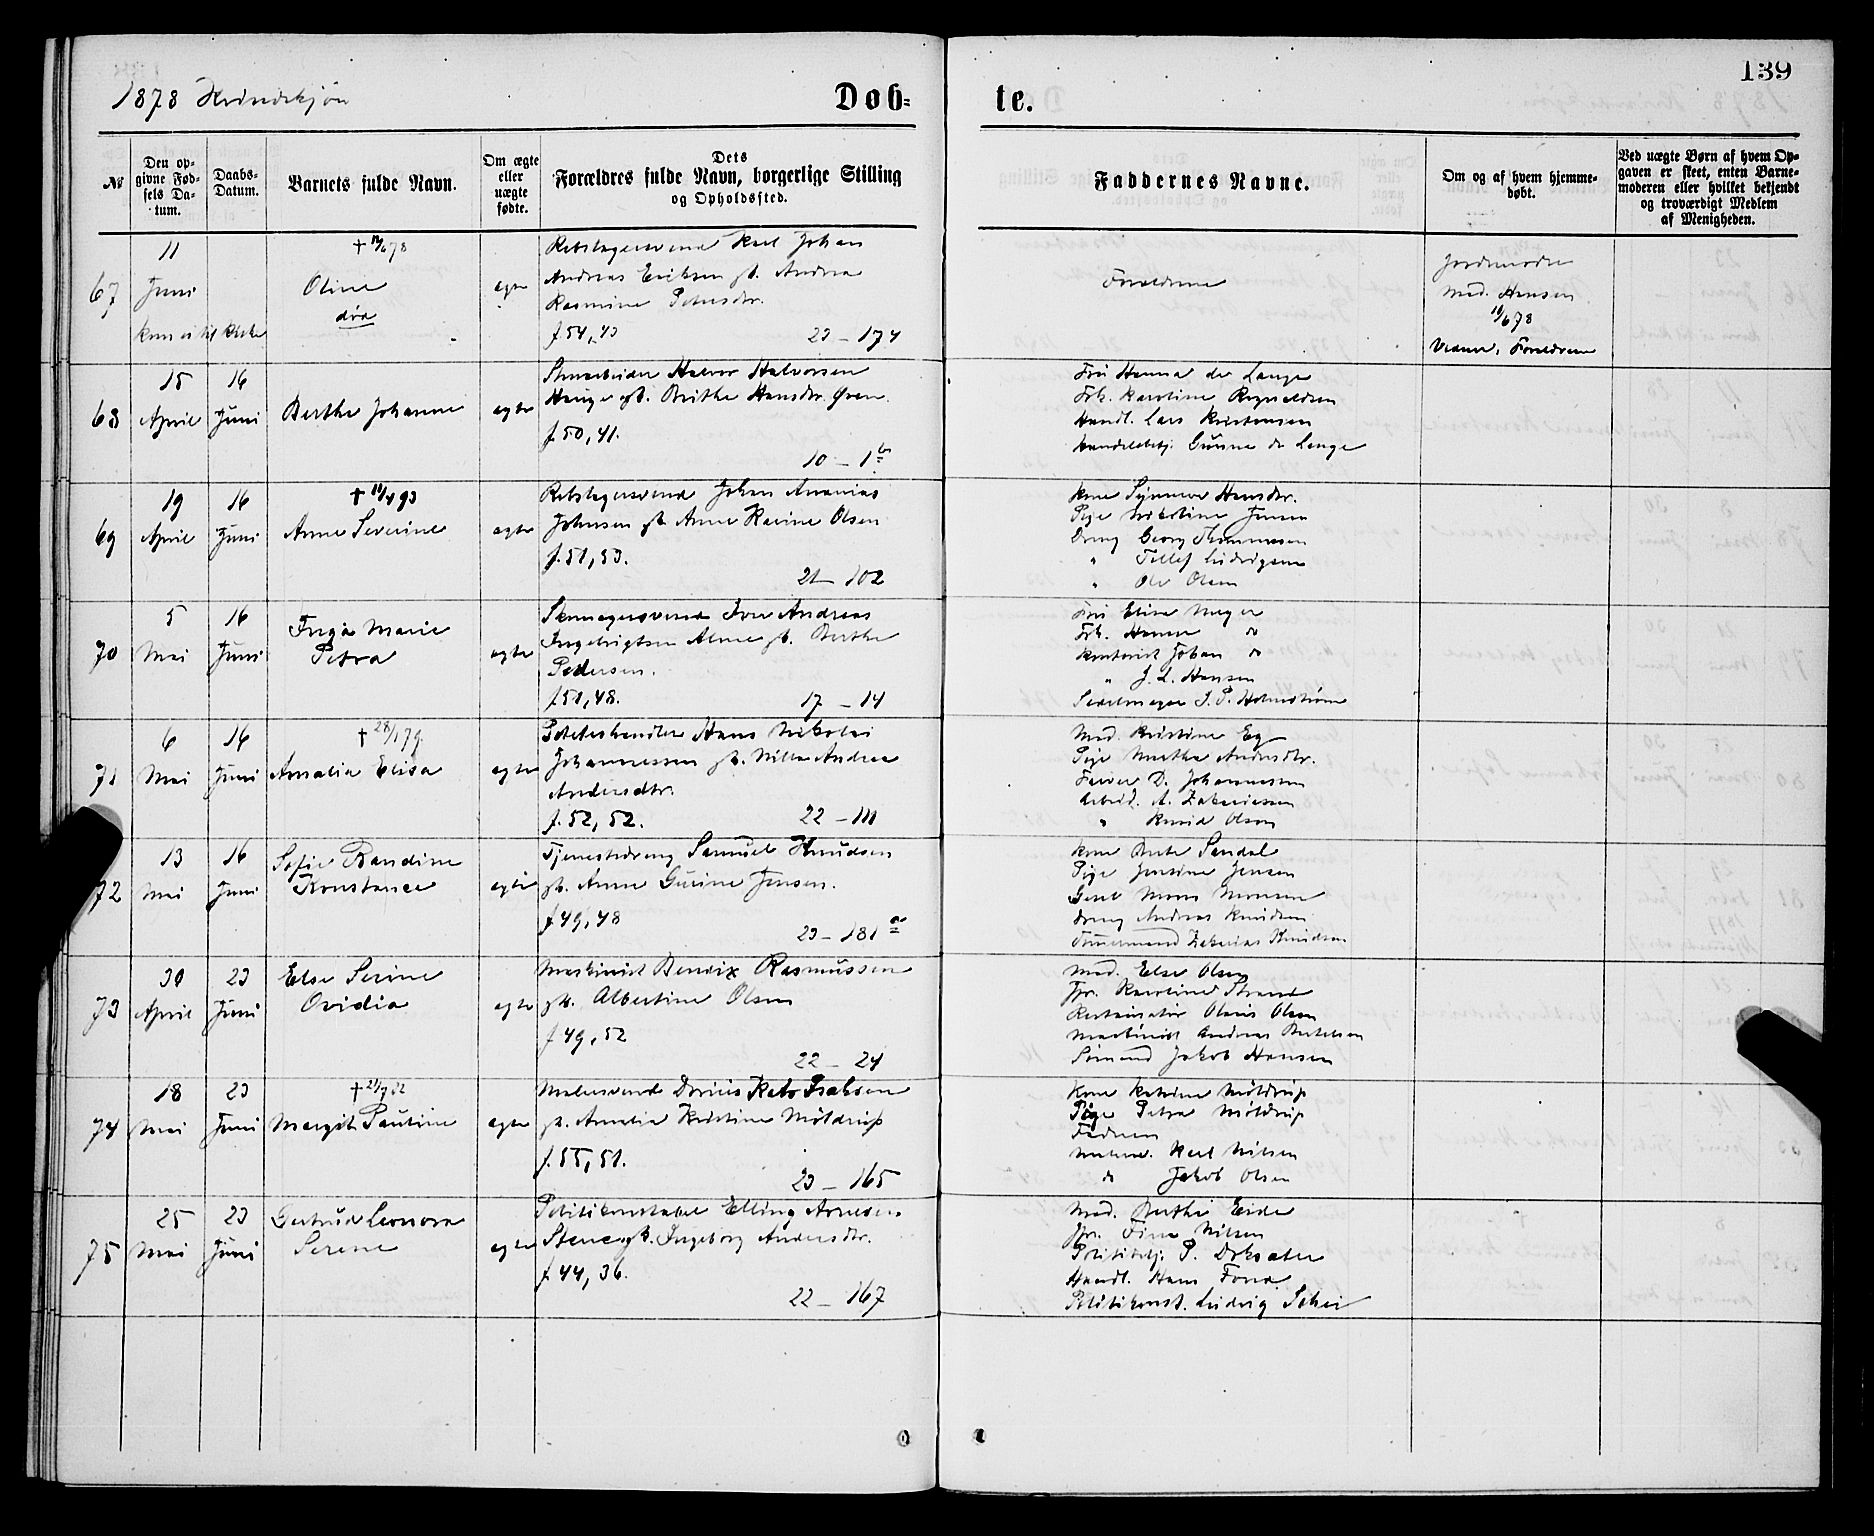 139
1878 Kvindekjøn
Døb- te.
№
Den op-
givne Fød-
sels Da-
tum.
Daabs-
Datum.
Barnets fulde Navn.
Om ægte
eller
uægte
fødte.
Dets
Forældres fulde Navn, borgerlige Stilling
og Opholdssted.
Faddernes Navne.
Om og af hvem hjemme-
døbt.
Ved uægte Børn af hvem Op-
gaven er skeet, enten Barne-
moderen eller hvilket bekjendt
og troværdigt Medlem
af Menigheden.
67
11
Juni
kom ei til Kirke
Oline
død
ægte
Rebslagersvend Karl Johan
Andreas Eriksen gb. Andrea
Rasmine Petersdtr.
f. 54, 43
23 – 174
Forældrene
Jordemoder
Mad. Hansen
Vidner. Forældrene
68
15 16
April Juni
Berthe Johanne
ægte
Halvor Halvorsen
Hauge gb. Brithe Hansdtr.
f. 50, 41.
10 – 1
Fru Hanna de Lange
Frk. Karoline
Handl. Lars Kristensen
Handelsbetj. de Lange
69
19 16
April Juni
Anne Severine
ægte
Rebslagersvend Johan Ananias
Johnsen gb. Anne Karine Olsen
f. 51, 53.
21 – 102
Kone Synnøve Hansdtr.
Pige Nikoline Jensen
Dreng Georg Thommesen
" Tellef Ludvigsen
" Ole Olsen
70
5 16
Mai Juni
Inga Marie
Petra
ægte
Skomagersvend Iver Andreas
Ingebrigtsen Alme gb. Berthe
Pedersen.
f. 51, 48.
17 – 14
Fru Elise Meyer
Frk. Hanna do
Kontorist Johan do
" J. L. Hansen
Seilmager J. P. Holmstrøm
71
6 16
Mai Juni
† 28/1 79.
Amalia Elisa
ægte
Hans Nikolai
Johannessen gb. Nille Andrea
Andersdtr.
f. 52, 52.
22 – 111
Mad. Kristine Eg
Pige Marthe Andersdtr.
Farver D. Johannessen
Arbeid. A. Zakariassen
" Knud Olsen
72
13 16
Mai Juni
Sofie Randine
Konstance
ægte
Tjenestedreng Samuel Knudsen
gb. Anne Gurine Jensen.
f. 49, 48
23 – 181 a
Kone Berte Sandal
Pige Jensine Jensen
Gesel Mons Monsen
Dreng Andreas Knudsen
Tømmermand Zakarias Knudsen
73
30 23
April Juni
Else Serine
Ovidia
ægte
Maskinist Bendix Rasmussen
gb. Albertine Olsen
f. 49, 52
22 – 24
Mad. Else Olsen
Jfr. Karoline Strand
Restauratør Olaus Olsen
Maskinist Andreas Bertelsen
Sømand Jakob Hansen
74
18 23
Mai Juni
† 21/7 82
Margit Pauline
ægte
Malersvend Dorius Kato Isaksen
gb. Amalia Kristine Møldrup
f. 55, 51.
23 – 165
Kone Katrine Møldrup
Pige Petra Møldrup
Faderen
Karl Nilsen
do Jakob Olsen
75
25 23
Mai Juni
Gertrud Leonora
Serene
ægte
Politikonstabel Elling Arnesen
Stene gb. Ingeborg Andersdtr.
f. 44, 36.
22 – 167
Mad. Berthe Eide
Jfr. Fina Nilsen
Politibetj. P. Doksæter
Handl. Hans Fond
Politikonst. Ludvig